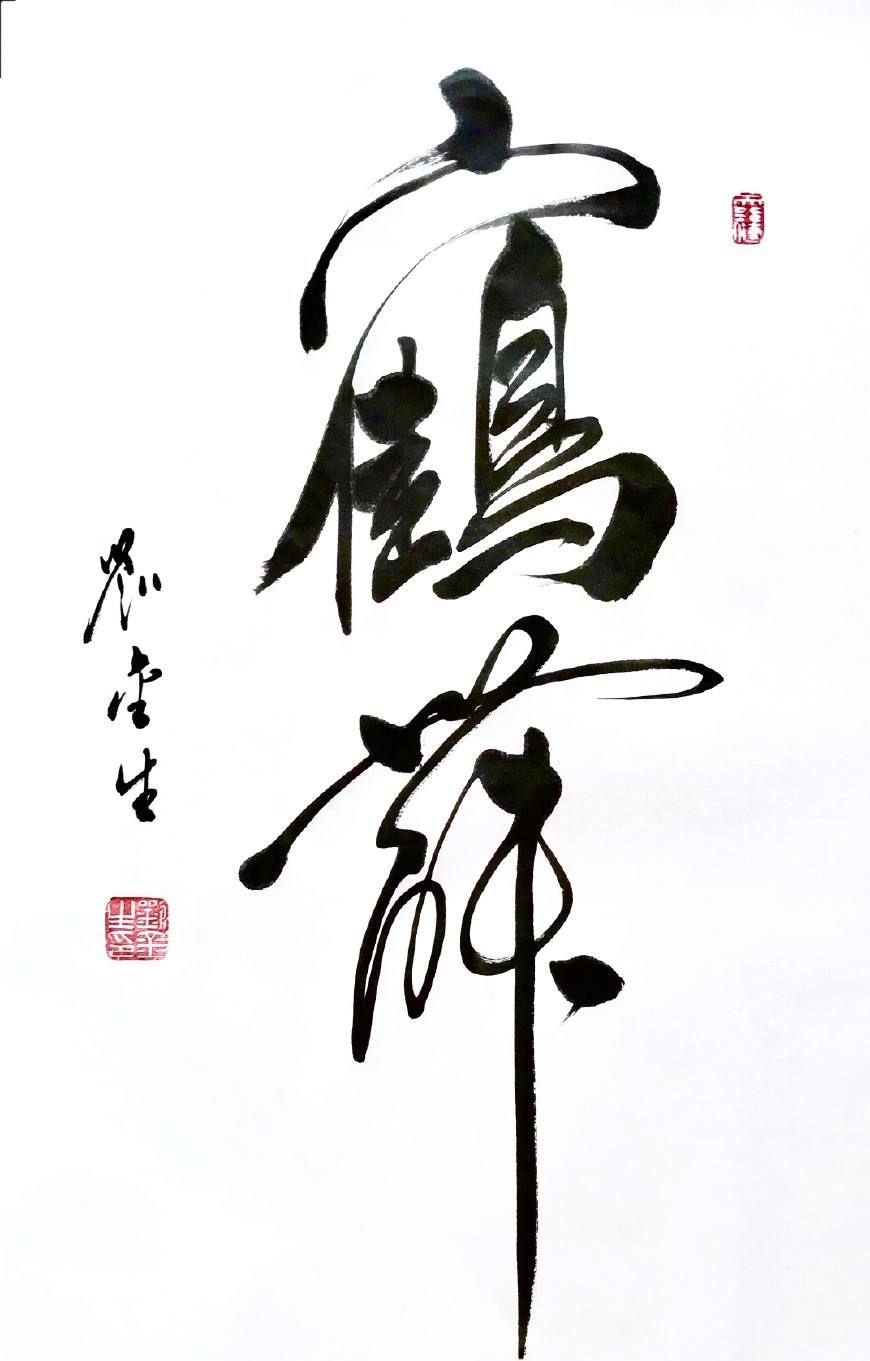 鶴舞
劉金生